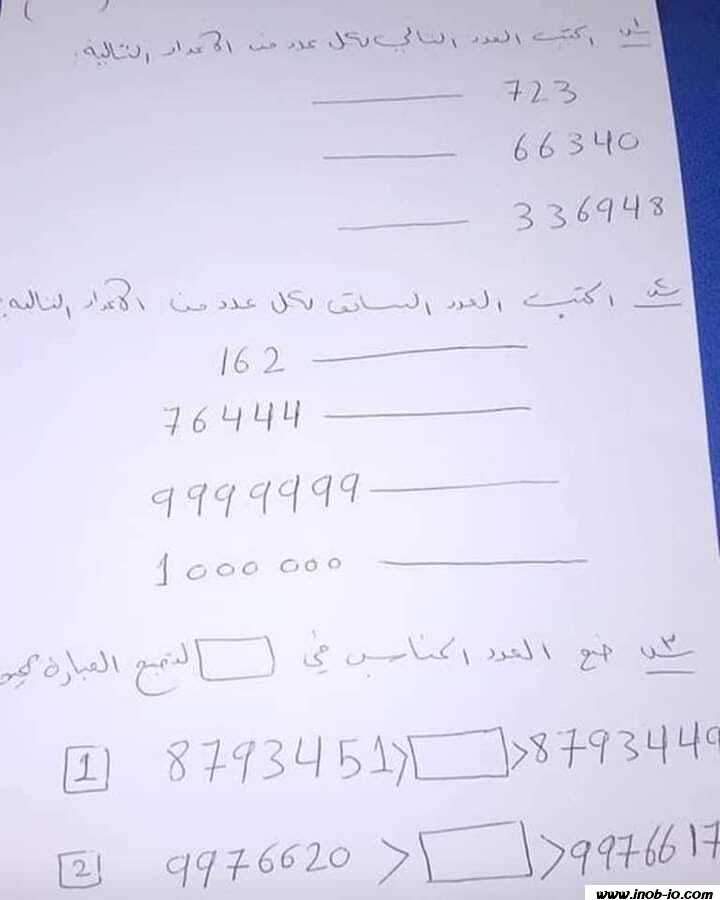 ( )
س١ اكتب العدد التالي لكل عدد من الأعداد التالية:
723 ______
66340 ______
336948 ______
س٢ اكتب العدد السابق لكل عدد من الأعداد التالية:
162 ______
76444 ______
9999999 ______
1000 000 ______
س٣ ضع العدد المناسب في □ لتصبح العبارة
1 8793451 > □ > 8793449
2 9976620 > □ > 9976617
www.inob-io.com